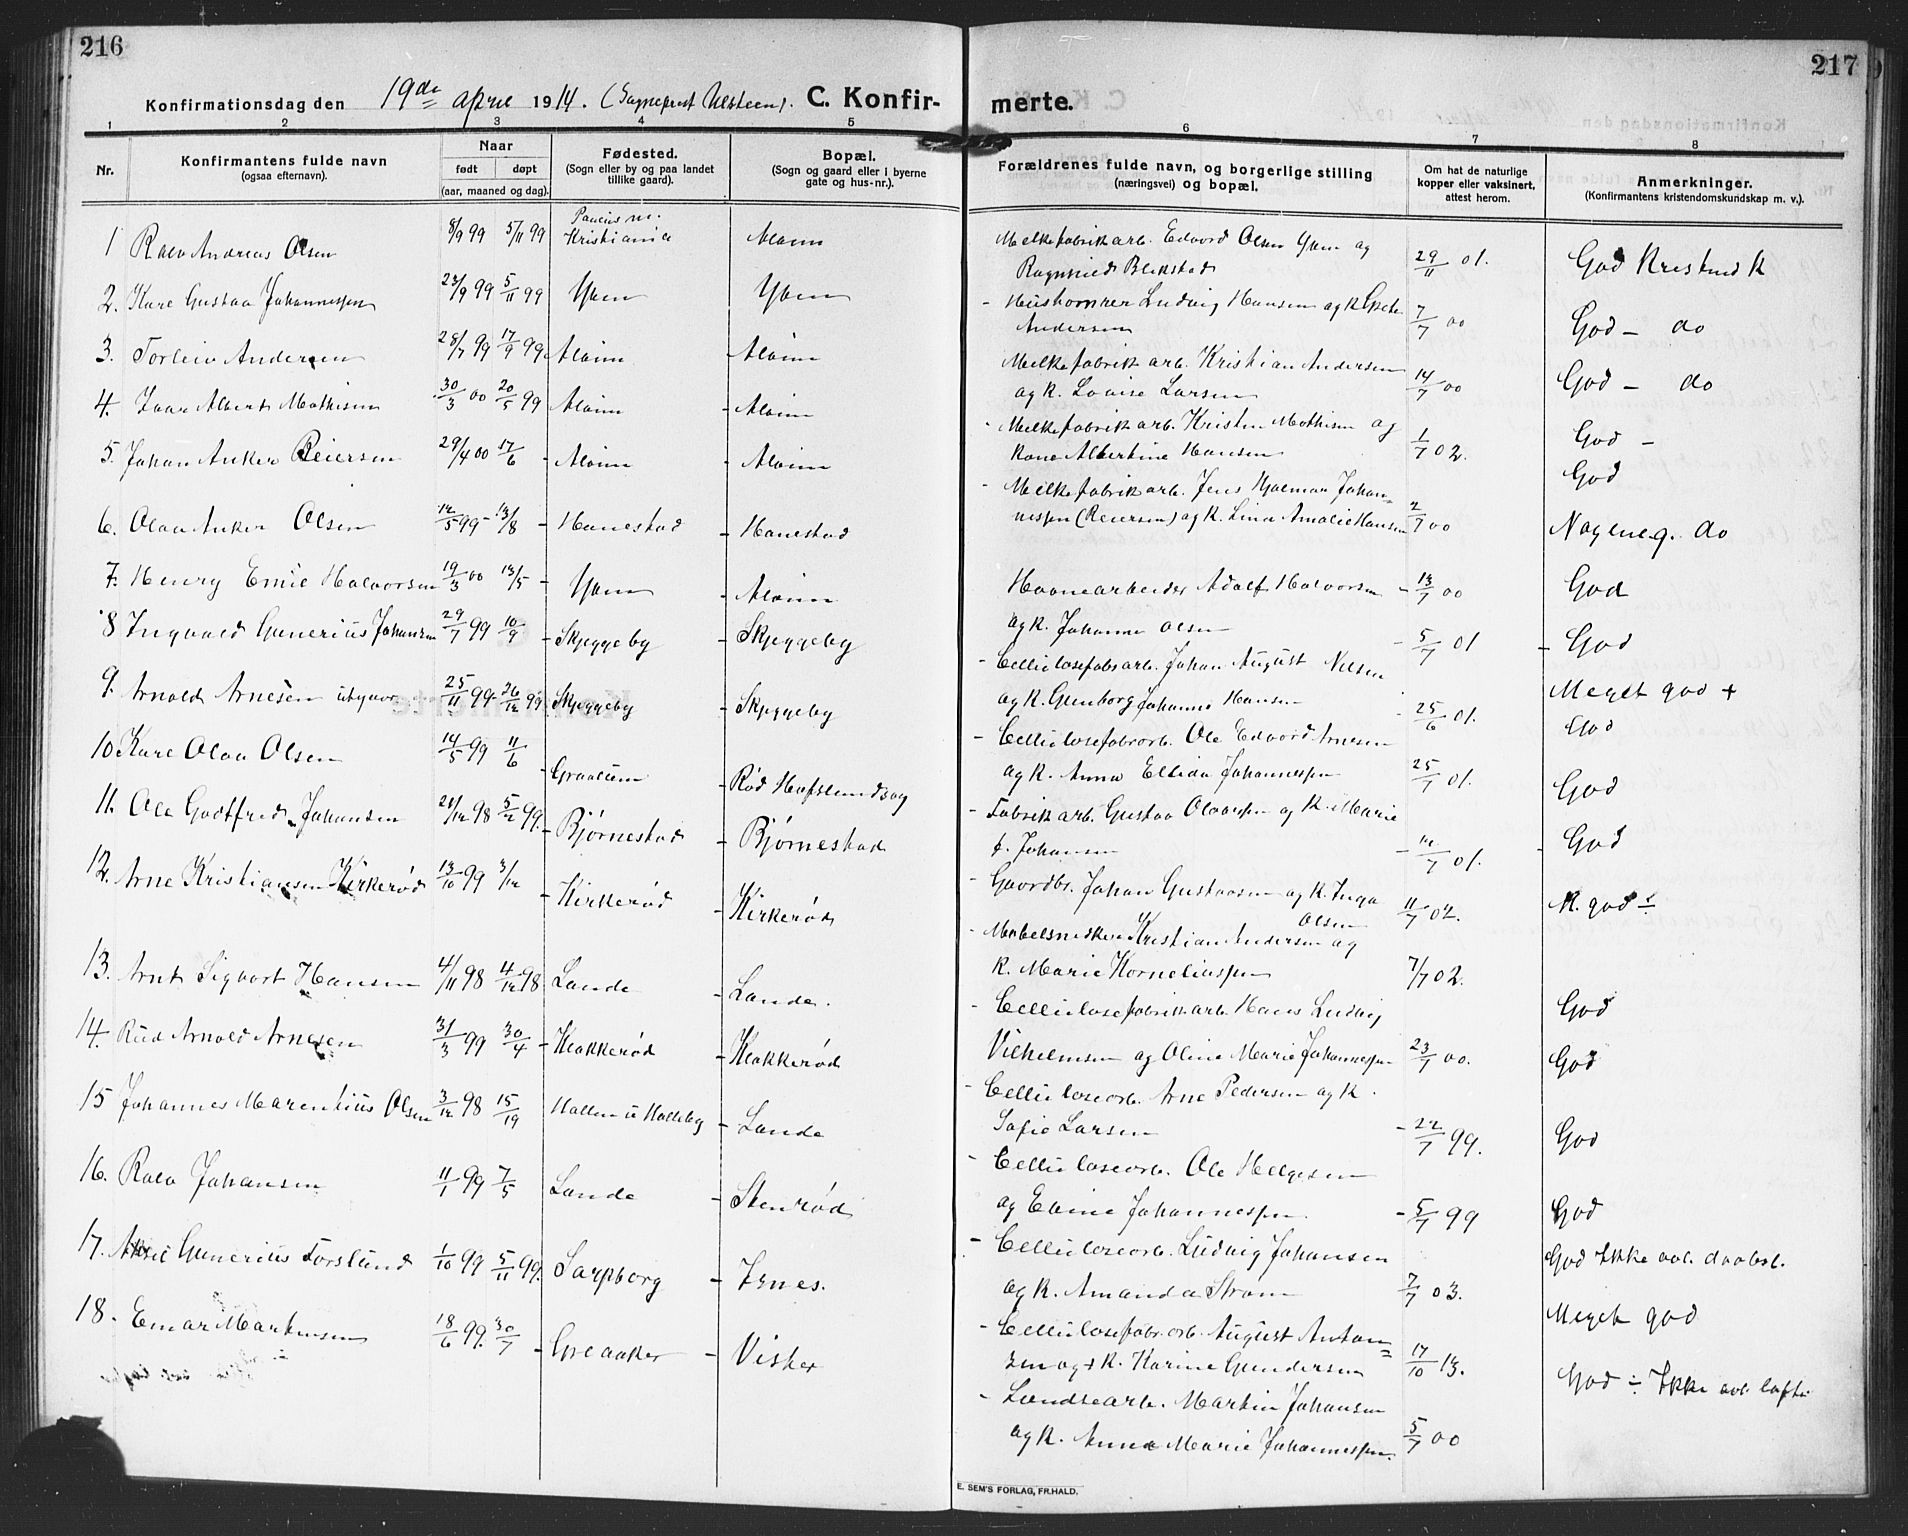 216
217
Konfirmationsdag den 19de april 1914. (Sogneprest Ulsteen). C. Konfirmerte.
1 2 3 4 5 6 7 8
Nr.
Konfirmantens fulde navn
(ogsaa efternavn).
Naar
født døpt
(aar, maaned og dag).
Fødested.
(Sogn eller by og paa landet
tillike gaard).
Bopæl.
(Sogn og gaard eller i byerne
gate og hus-nr.).
Forældrenes fulde navn, og borgerlige stilling
(næringsvei) og bopæl.
Om hat de naturlige
kopper eller vaksinert,
attest herom.
Anmerkninger.
(Konfirmantens kristendomskundskap m. v.).
1 Ralv Andreas Olsen 8/9 99 5/11 99 Paulus m. Kristiania Alvim
2. Kare Gustav Johannessen 5/11 99
3. Torleiv Andersen 28/7 99 17/9 99 Alvim Alvim
4. Ivar Albert Mathisen 30/3 00 20/5 99 Alvim - Alvim
5. Johan Anker Reiersen 29/4 00 17/6 - Alvim - Alvim
6. Olav Anker Olsen 12/5 99 - 13/8 - Hanestad - Hanestad
7. Henry Emil Halvorsen 19/3 00 13/5 - - Alvim
8 Ingvald Gunerius Johansen 29/7 99 10/9 - Skjeggeby - Skjeggeby
9. Arnold Arnesen utgaar 25/11 99 - 26/12 99 Skjeggeby - Skjeggeby
10 Kare Olav Olsen 14/5 99 11/6 - Graalum - Rød Hafslundsøy
11. Ole Godtfred Johansen 21/12 98 5/2 99. - Bjørnestad - Bjørnestad
12. Arne Kristiansen Kirkerød 13/10 99 3/12 - Kirkerød - Kirkerød
13. Arnt Sigvart Hansen 4/11 98 4/12 98 Lande - Lande.
14. Rud Arnold Arnesen 31/3 99 30/4 - Klokkerød - Klokkerød
15 Johannes Marentius Olsen 3/12 98 15/19 Hallen u Halleby - Lande
16. Ralv Johansen 11/1 99 7/5 Lande - Stenrød
17. Gunerius Forslund 1/10 99 5/11 99. Sarpborg - Ienes.
18. Einar Martinsen 18/6 99. 30/7 - Greaaker - Vister
Melkefabrikarb. Edvard Olsen og
Ragnhild Blekstad 29/11 01. God Kristendk
- Husholmer Ludvig Hansen og k Grete
Andersen 7/7 00 God - do
Melkefabrik arb. Kristian Andersen
og k. Lovise Larsen 14/7 00 God - do
- Melkefabrik arb. Kristen Mathisen og
kone Albertine Hansen 1/7 02. God -
- Melkefabrik arb. Jens Hjalmar Johan-
nessen (Reiersen) og k. Lina Amalie Hansen 2/7 00 God
Nogenleg. do
Havnearbeider Adolf Halvorsen
og k. Johanne Olsen - 13/7 00 God
- Cellulosefabarb. Johan August Nilsen
og k. Gunborg Johanne Hansen - 5/7 01 - God
- Cellulosefabarb. Ole Edvard Arnesen
og k. Anna Ellida Johannessen - 25/6 01. Meget god +
- Fabrik arb. Gustav Olaussen og k. Marie
f. Johansen 25/7 01. God
- Gaardbr. Johan Gustavsen og k. Inga
Olsen - 12/7 01. God
- Møbelsnekker Kristian Andersen og
k. Marie Korneliussen 11/7 02. - God
- Cellulosefabrikarb. Hans Ludvig
Vilhelmsen og Oline Marie Johannessen 7/7 02. k. god ÷
- Celluloseorb. Arne Pedersen og k.
Sofie Larsen 23/7 00. God
- Celluloseorb. Ole Helgesen
og Eline Johannessen - 22/7 99. God
- Celluloseorb. Ludvig Johansen
og k. Amanda Strøm - 5/7 99 God
- Cellulosefabr. arb. August Anton-
sen og k. Karine Gundersen 7/7 03. God
17/10 13. God Ikke avl. daabsl.
- Lændsearb. Martin Johansen
og k. Anna Marie Johannessen. 5/7 00 Meget god
God ÷ Ikke avl. løfte
E. SEM'S FORLAG, FR.HALD.